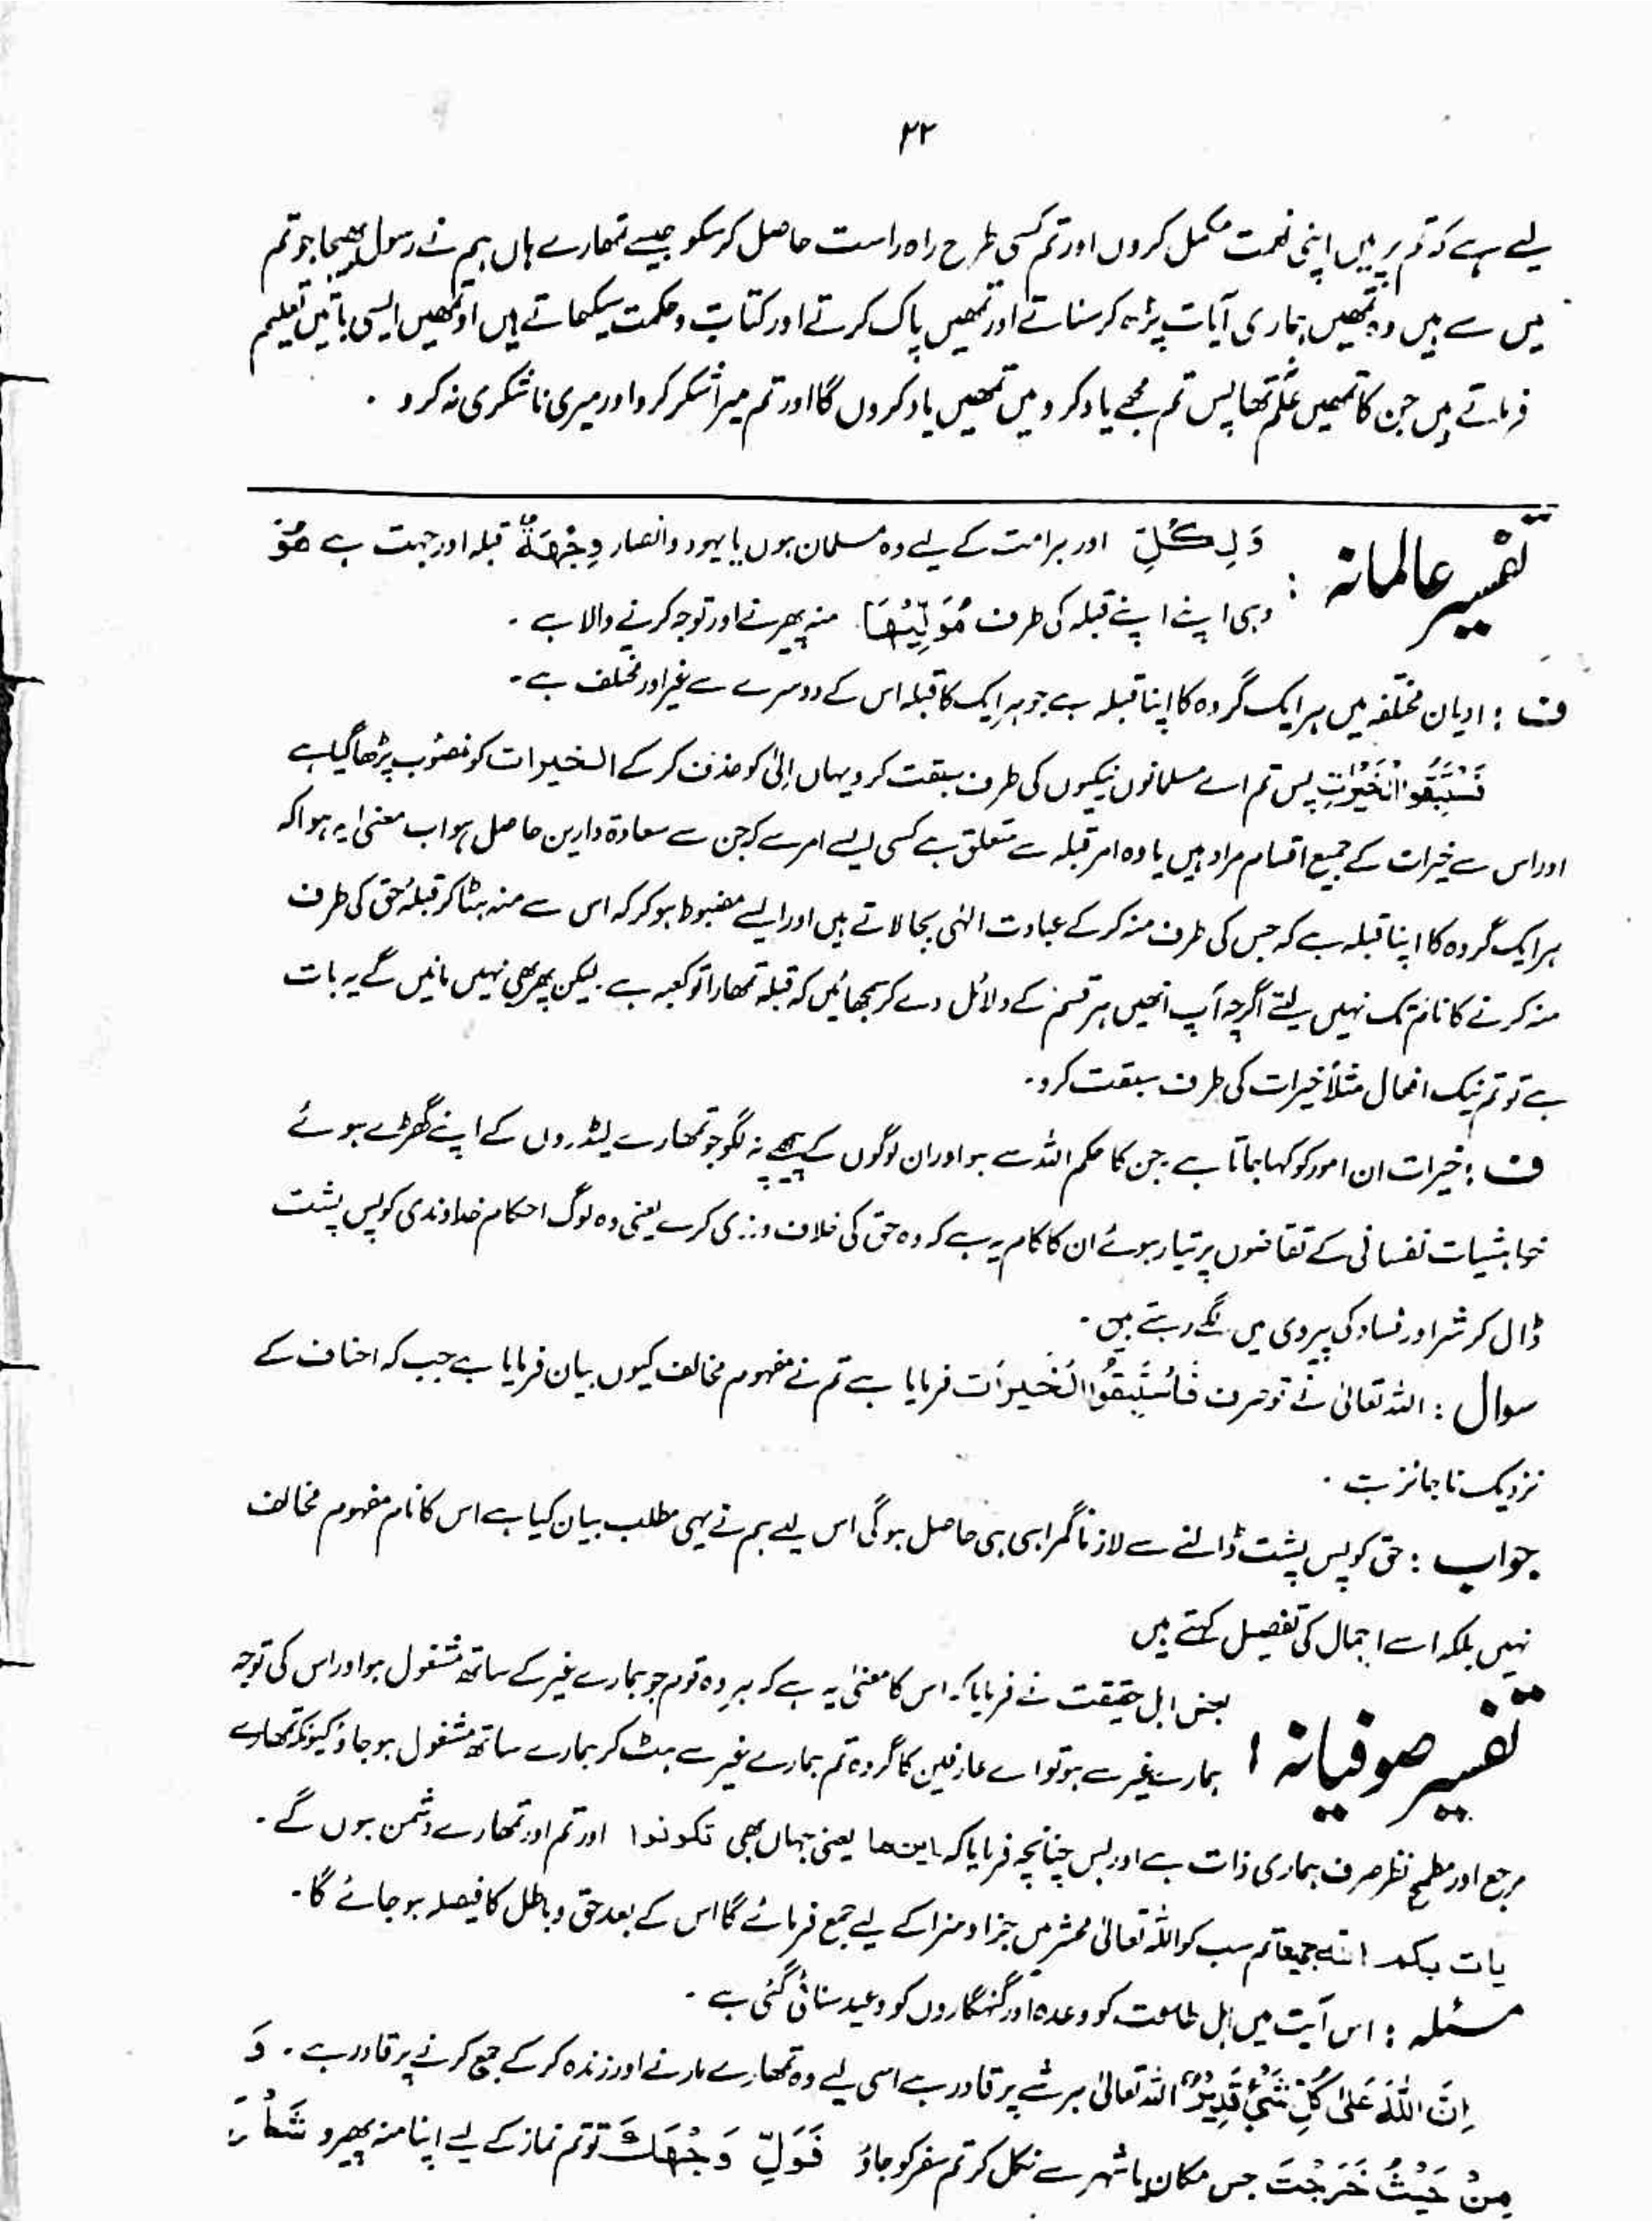 ۲۲
لیے ہے کہ تم پر میں اپنی نعمت مکمل کروں اور تم کسی طرح راہ راست حاصل کرسکو جیسے تمھارے ہاں ہم نے رسول بھیجا جو تم
میں سے ہیں وہ تمھیں ہماری آیات پڑھ کر سناتے اور تمھیں پاک کرتے اور کتاب و حکمت سیکھاتے ہیں اور تمھیں ایسی باتیں تعلیم
فرماتے ہیں جن کا تمھیں علم تھا پس تم مجھے یاد کرو میں تمھیں یاد کروں گا اور تم میرا شکر کرو اور میری ناشکری نہ کرو .
تفسیر عالمانہ : وَلِكُلٍّ اور ہر امت کے لیے وہ مسلمان ہوں یا یہود و انصار وِّجْهَةٌ قبلہ اور جہت ہے هُوَ
وہی اپنے اپنے قبلہ کی طرف مُوَلِّيْهَا منہ پھیرنے اور توجہ کرنے والا ہے ۔
ف : ادیان مختلفہ میں ہر ایک گروہ کا اپنا قبلہ ہے جو ہر ایک کا قبلہ اس کے دوسرے سے غیر اور مختلف ہے ۔
فَسْتَبِقُوا الْخَيْرٰتِ پس تم اے مسلمانوں نیکیوں کی طرف سبقت کرو یہاں اِلیٰ کو حذف کر کے الخیرات کو منصوب پڑھا گیا ہے
اور اس سے خیرات کے جمیع اقسام مراد ہیں یا وہ امر قبلہ سے متعلق ہے کسی ایسے امر سے کہ جن سے سعادۃ دارین حاصل ہو اب معنیٰ یہ ہوا کہ
ہر ایک گروہ کا اپنا قبلہ ہے کہ جس کی طرف منہ کر کے عبادت الٰہی بجا لاتے ہیں اور ایسے مضبوط ہو کر کہ اس سے منہ ہٹا کر قبلۂ حق کی طرف
منہ کرنے کا نام تک نہیں لیتے اگرچہ آپ انھیں ہر قسم کے دلائل دے کر سمجھائیں کہ قبلہ تمھارا تو کعبہ ہے لیکن پھر بھی نہیں مانیں گے یہ بات
ہے تو تم نیک افعال مثلاً خیرات کی طرف سبقت کرو ۔
ف : خیرات ان امور کو کہا جاتا ہے جن کا حکم اللہ سے ہو اور ان لوگوں کے پیچھے نہ لگو جو تمھارے لیڈروں کے اپنے گھڑے ہوئے
خواہشیات نفسانی کے تقاضوں پر تیار ہوئے ان کا کام یہ ہے کہ وہ حق کی خلاف ورزی کرے یعنی وہ لوگ احکام خداوندی کو پس پشت
ڈال کر شر اور فساد کی پیروی میں لگے رہتے ہیں ۔
سوال : اللہ تعالیٰ نے تو صرف فَاسْتَبِقُوا الْخَيْرَات فرمایا ہے تم نے مفہوم مخالف کیوں بیان فرمایا ہے جب کہ احناف کے
نزدیک ناجائز ہے .
جواب : حق کو پس پشت ڈالنے سے لازماً گمراہی ہی حاصل ہوگی اس لیے ہم نے یہی مطلب بیان کیا ہے اس کا نام مفہوم مخالف
نہیں بلکہ اسے اجمال کی تفصیل کہتے ہیں
تفسیر صوفیانہ : بعض اہل حقیقت نے فرمایا کہ اس کا معنیٰ یہ ہے کہ ہر وہ قوم جو ہمارے غیر کے ساتھ مشغول ہو اور اس کی توجہ
ہمارے غیر سے ہو تو اے عارفین کا گروہ تم ہمارے غیر سے ہٹ کر ہمارے ساتھ مشغول ہو جاؤ کیونکہ تمھارے
مرجع اور مطمح نظر صرف ہماری ذات ہے اور بس چنانچہ فرمایا کہ این ما یعنی جہاں بھی تکونوا اور تم اور تمھارے دشمن ہوں گے ۔
یات بکم اللہ جمیعا تم سب کو اللہ تعالیٰ محشر میں جزا و سزا کے لیے جمع فرمائے گا اس کے بعد حق و باطل کا فیصلہ ہو جائے گا ۔
مسئلہ : اس آیت میں اہل طاعت کو وعدہ اور گنہگاروں کو وعید سنائی گئی ہے ۔
اِنَّ اللّٰهَ عَلىٰ كُلِّ شَيْءٍ قَدِيْرٌ اللہ تعالیٰ ہر شے پر قادر ہے اسی لیے وہ تمھارے مارنے اور زندہ کر کے جمع کرنے پر قادر ہے ۔ وَ
مِنْ حَيْثُ خَرَجْتَ جس مکان یا شہر سے نکل کر تم سفر کو جاؤ فَوَلِّ وَجْهَكَ تو تم نماز کے لیے اپنا منہ پھیرو شَطْرَ